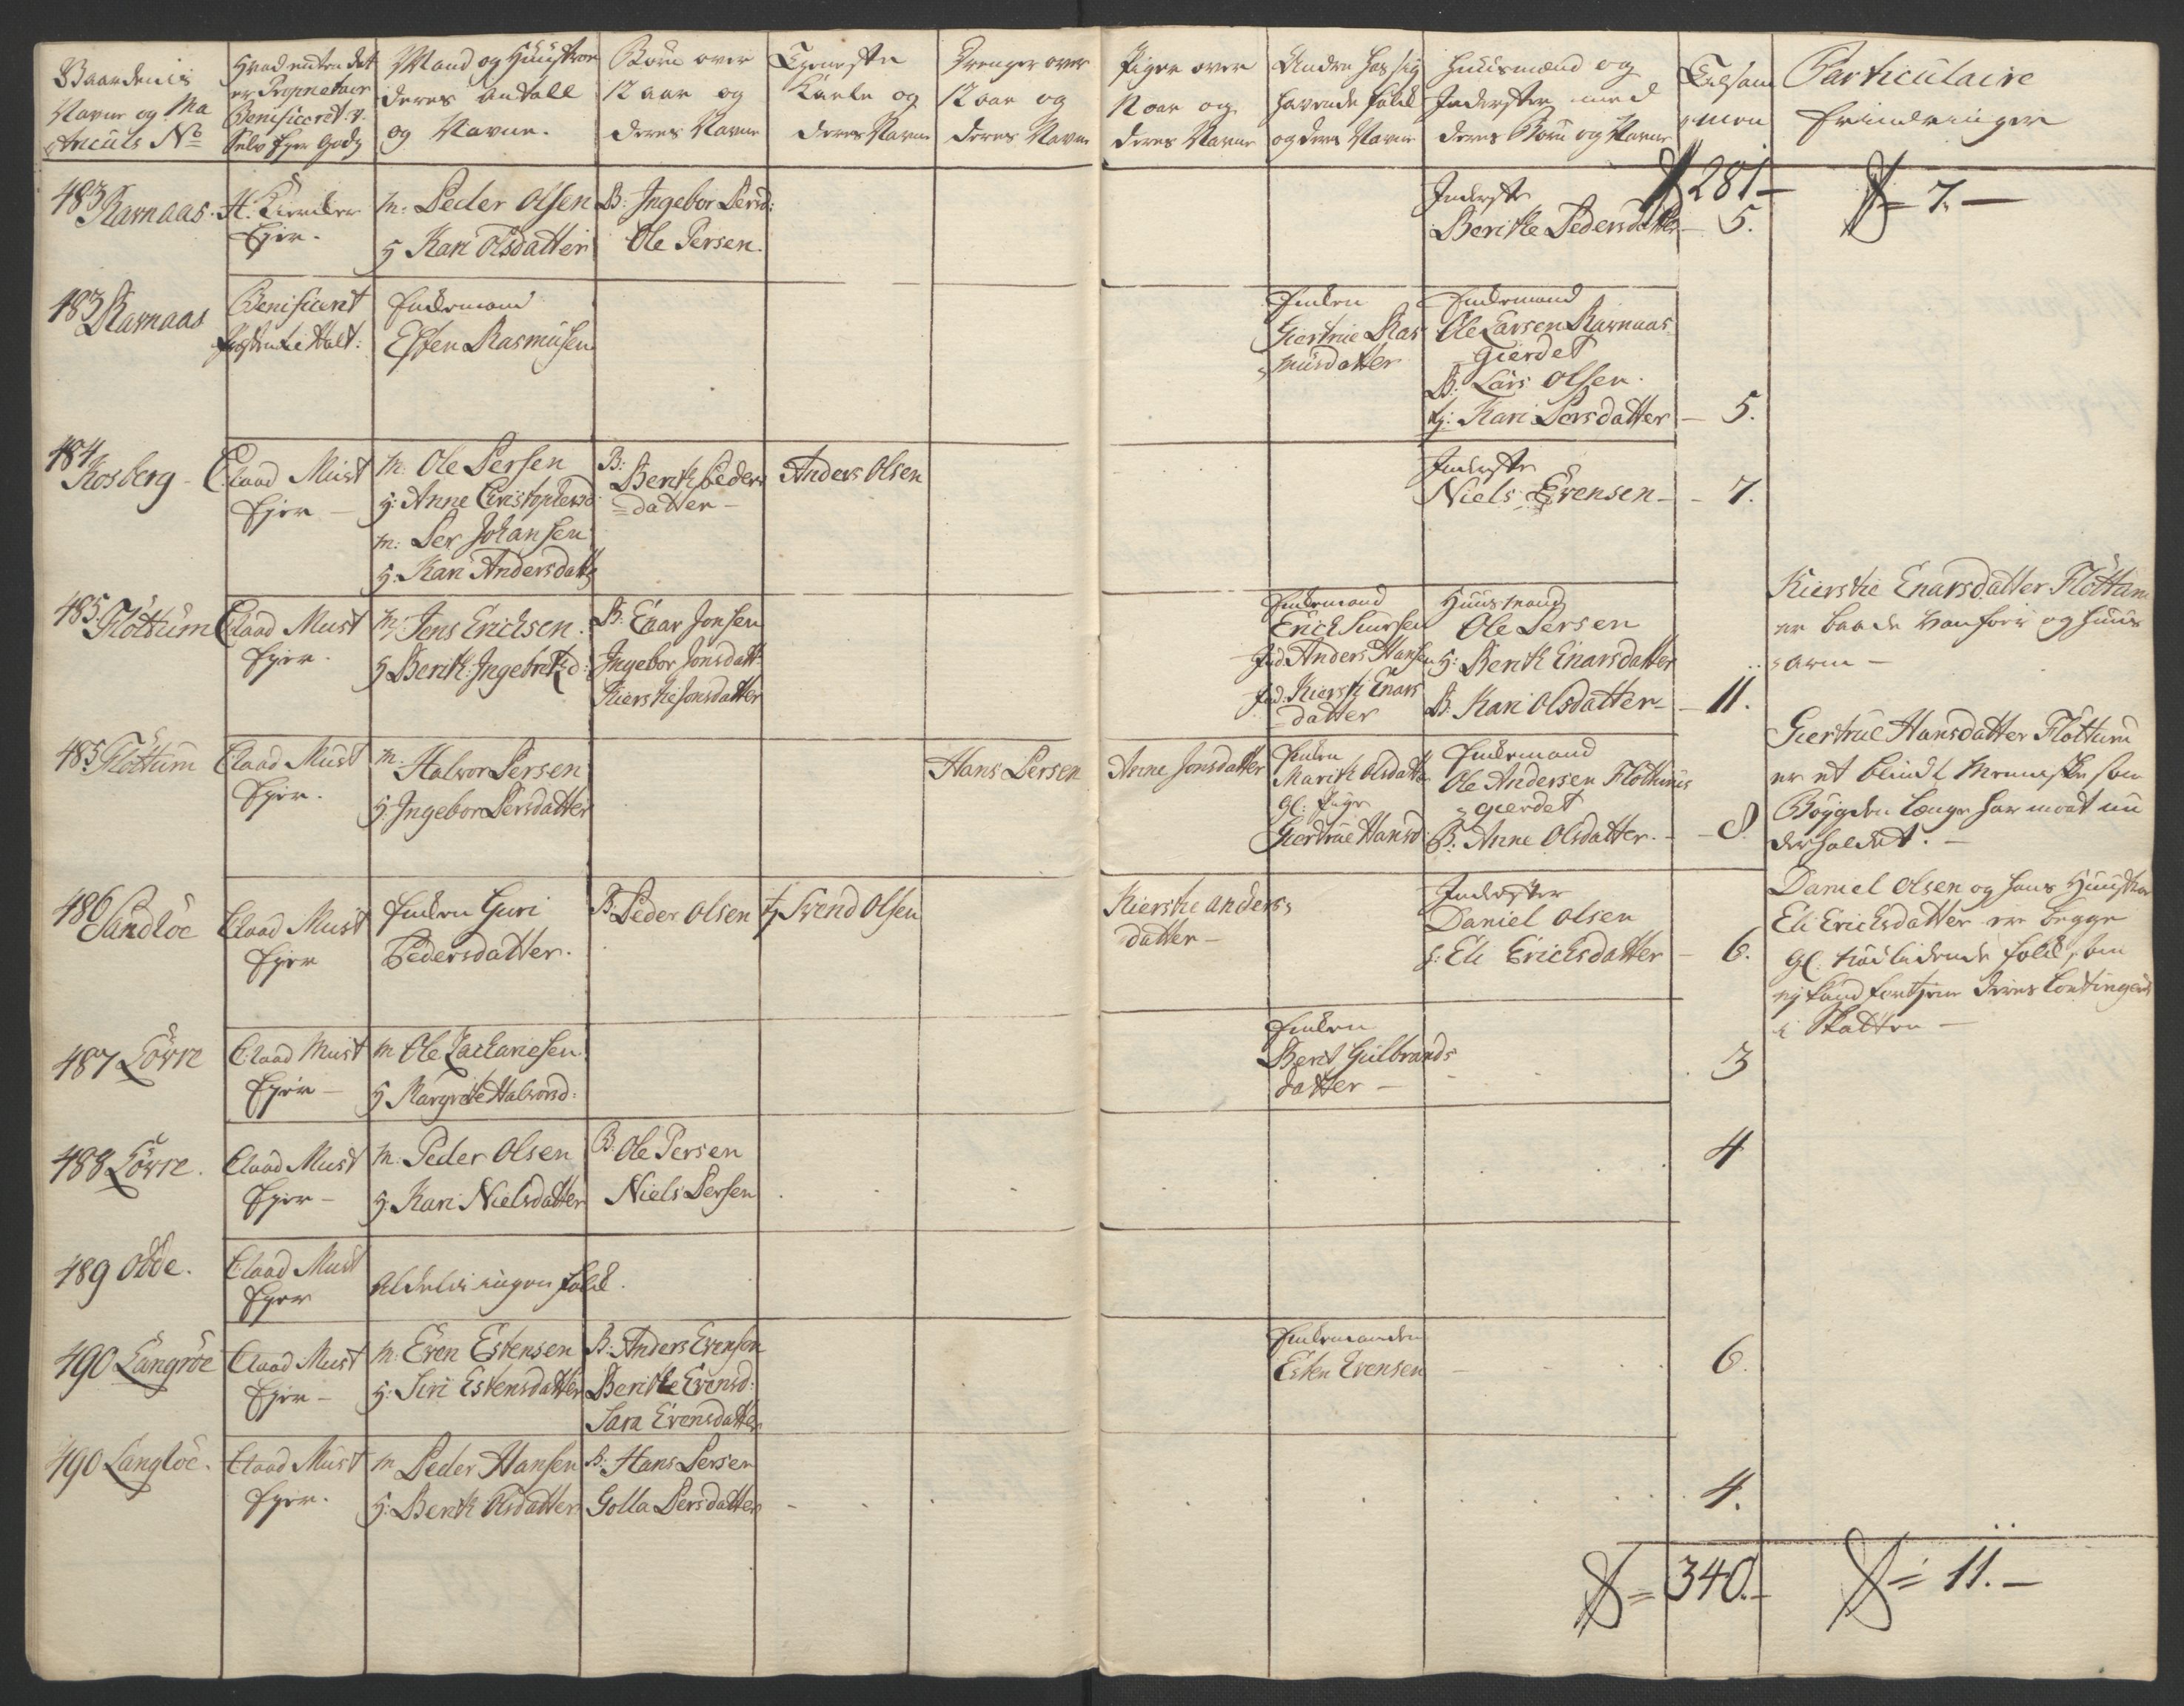 Gaardenis
Navne og Ma
triculs No
Hvad enten det
er Proprietair
Benificeret v.
Selv Ejer Gods
Mand og Hustroe
deres Antall
og Navne.
Børn over
12 aar og
deres Navne
Tieneste
Karle og
deres Navne
Drenger over
12 aar og
deres Navne
Piger over
12 aar og
deres Navne
Andre hos sig
havende folk
og deres Navne
Huusmænd og
Inderster med
deres Børn og Navne
Tilsam
men
Particulaire
Erindringer
281
7.
483 Ramaas.
H.
Ejer.
M: Peder Olsen
H Kari Olsdatter
B: Ingebor Persd:
Ole Persen.
Inderste
Beritke Pedersdatter
5.
483 Ramaas
Benificeret
Enkemand
Esten Rasmusen
Enken
Giertrue Ras
musdatter
Enkemand
Ole Larsen Ramaas
gierdet
B: Lars Olsen.
Kari Persdatter
5.
484 Rosberg
Claad Must
Ejer
M: Ole Persen
H: Anne Christophersd
M: Per Johansen
H: Kari Andersdattr
B:
Berit Peders
datter
Anders Olsen
Inderste
Niels Evensen
7.
485 Fløttum
Claad Must
Ejer.
M: Jens Ericksen.
H Berit: Ingebretsd:
B: Enar Jonsen
Ingebor Jonsdatt
Kierstie Jonsdatter
Enkemand
Erick Siursen
Ind Anders Hansen
Ind: Kiersti Enars
datter
Huusmand
Ole Persen
H: Berit Enarsdatter
B: Kari Olsdatter
11.
Kierstie Enarsdatter Fløttum
er baade vanfør og huus
arm
485 Fløttum
Claad Must
Ejer.
M:
Halvor Persen
H: Ingebor Persdatter
Hans Persen
Anne Jonsdatter
Enken
Marit Olsdatter
gl: Pige
Giertrue Hansd:
Enkemand
Ole Andersen Fløttums
gierdet
B: Anne Olsdatter.
8.
Giertrue Hansdatter Fløttum
er et blindt Menneske som
Bøygden længe har maat un
derholdet.
486 Sandløe
Claad Must
Ejer
Enken Guri
Pedersdatter.
B: Peder Olsen
Svend Olsen
Kierstie Anders
datter
Inderster
Daniel Olsen
H: Eli Ericksdatter
6.
Daniel Olsen og hans Hustroe
Eli Ericksdatter er begge
gl. nødlidende folk, som
ej kand fortiene deres Contingent
i Skatten
487 Løvre
Claad Must
Ejer
M Ole Zachariesen
H Margrete Halvorsd:
Enken
Berit Gulbrands
datter
3
488 Løvre.
Claad Must
Ejer
M: Peder Olsen
H: Kari Nielsdatter
B: Ole Persen
Niels Persen
4
489 Odde.
Claad Must
Ejer
Aldeles ingen folk.
490 Langløe
Claad Must
Ejer
M: Even Estensen
H: Siri Estensdatter
B: Anders Evensen
Beritke Evensd:
Sara Evensdatter
Enkemanden
Esten Evensen
6.
490 Langløe.
Claad Must
Ejer.
M Peder Hansen
H: Berit Olsdatter
B: Hans Persen
Golla Persdatter
4.
340.
11.